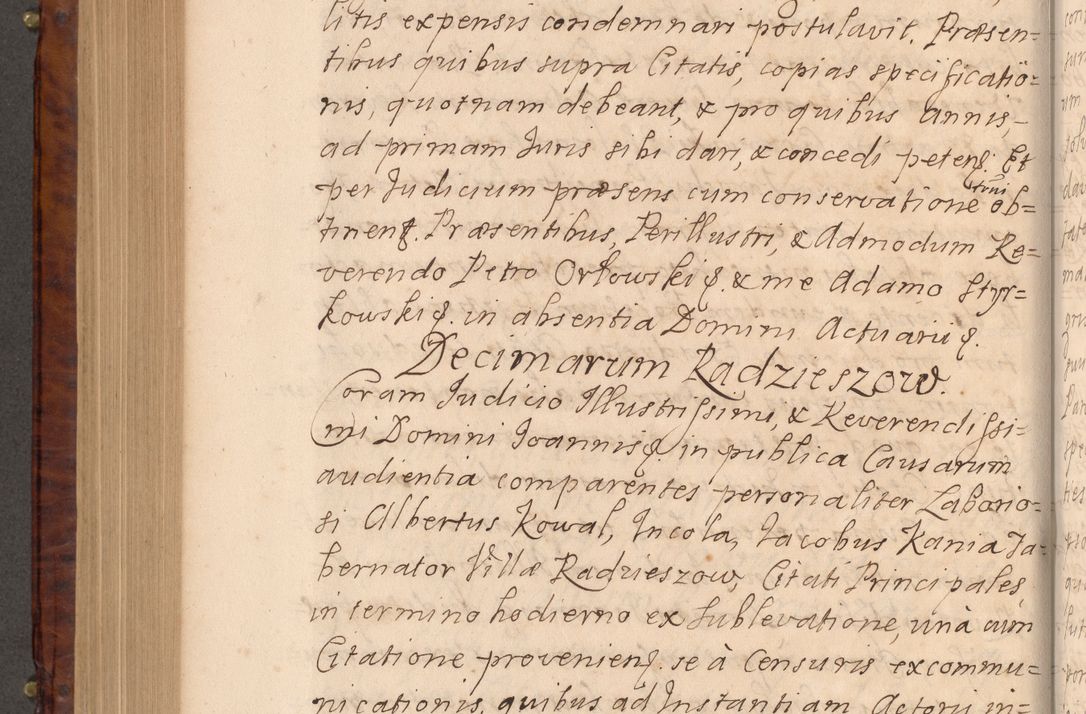 litis expensis condemnari postulavit. Præsen=
tibus quibus supra Citatis, copias specificatio=
nis, quotnam debeant, & pro quibus annis,
ad primam Iuris sibi dari, & concedi petenſ. Et
per Iudicium præsens cum conservatione trmi ob=
tinenſ. Præsentibus, Perillustri, & Admodum Re=
verendo Petro Orłowskiſ. & me Adamo Styr=
kowskiſ. in absentia Domini Actuariiſ.
Decimarum Radzieszow.
Coram Iudicio Illustrissimi, & Reverendissi=
mi Domini Ioannisſ. in publica Causarum
audientia comparentes personaliter Laborio=
si Albertus Kowal, Incola, Iacobus Kania Ta=
bernator Villæ Radzieszow, Citati Principales
in termino hodierno ex sublevatione, unà cum
Citatione provenienſ. se à Censuris excommu=
nicationis, quibus ad Instantiam Actorii in=